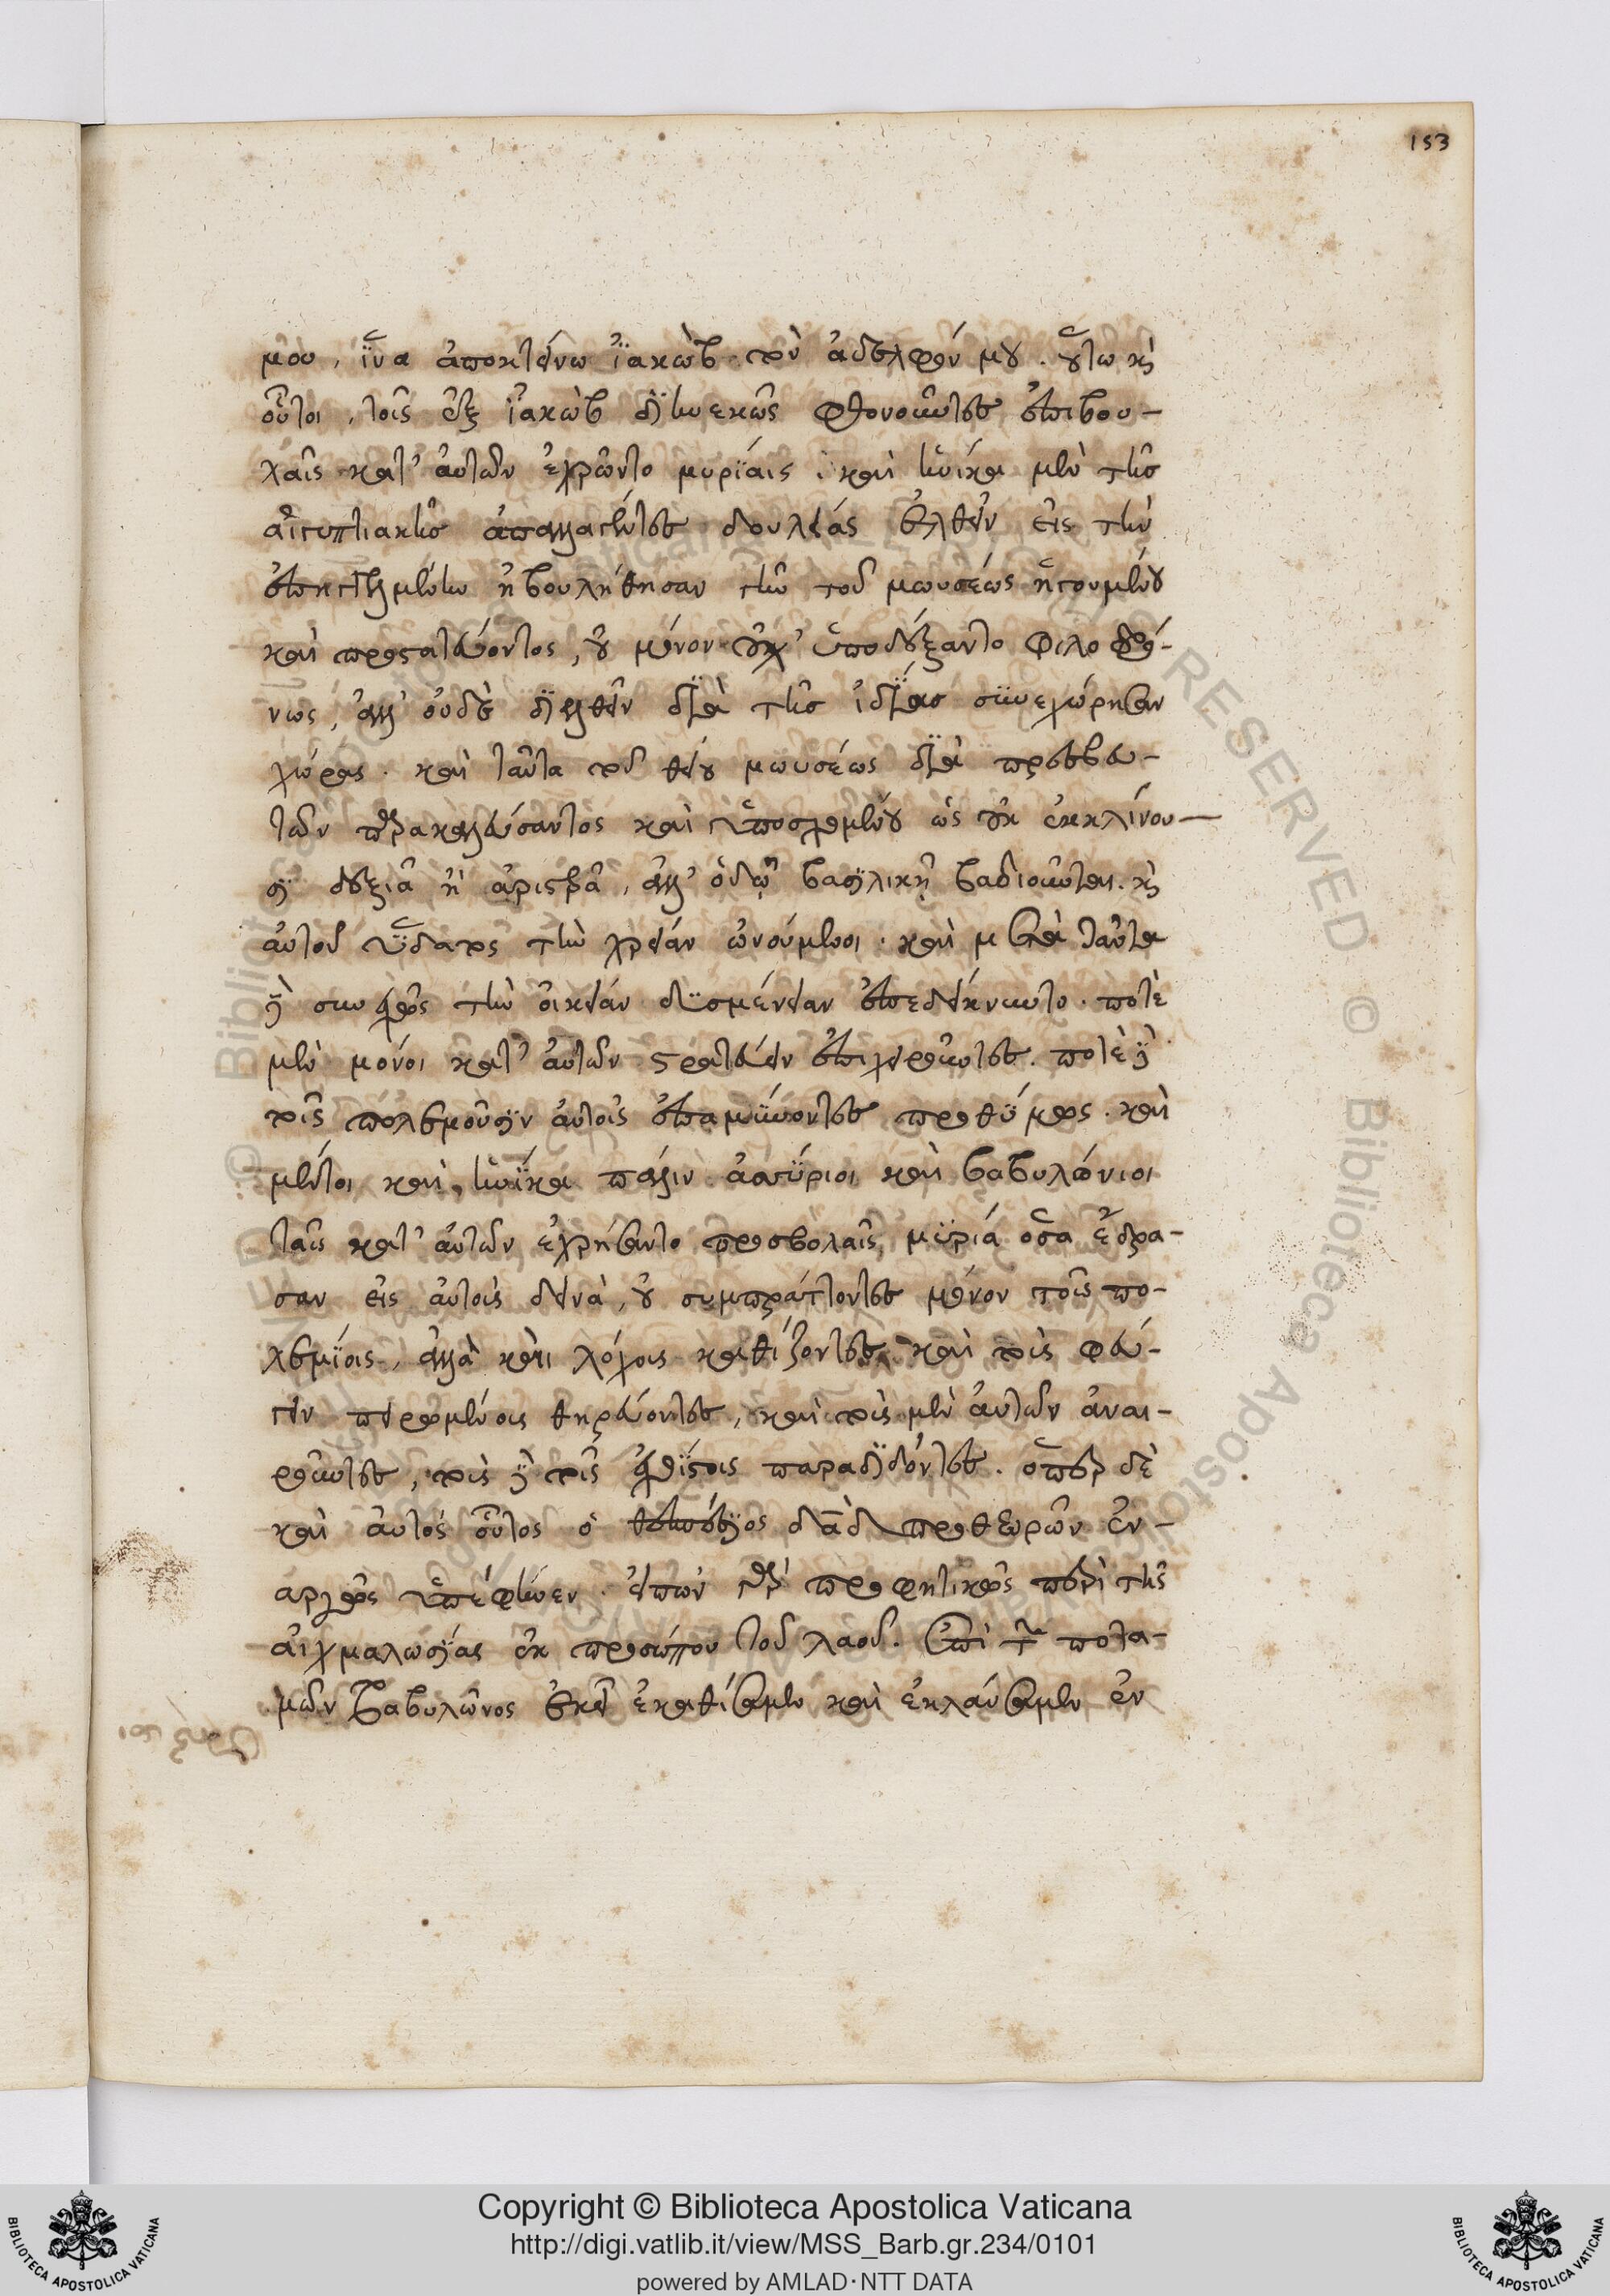 153
μου, ἵνα ἀποκτείνω ἰακὼβ τὸν ἀδελφόν μου. οὕτω καὶ
οὗτοι, τοῖς ἐξ ἰακὼβ διηνεκῶς φθονοῦντες ἐπιβου-
λαῖς κατ' αὐτῶν ἐχρῶντο μυρίαις. καὶ ἡνίκα μὲν τῆς
αἰγυπτιακῆς ἀπαλλαγέντες δουλείας ἐλθεῖν εἰς τὴν
ἐπηγγελμένην ἠβουλήθησαν γῆν τοῦ μωυσέως ἡγουμένου
καὶ προστατεύοντος, οὐ μόνον οὐχ' ὑπεδέξαντο φιλοφρό-
νως, ἀλλ' οὐδὲ διελθεῖν διὰ τῆς ἰδίας συνεχώρησαν
χώρας. καὶ ταῦτα τοῦ θείου μωυσέως διὰ πρεσβευ-
τῶν παρακαλέσαντος καὶ ὑποσχομένου ὡς οὐκ ἐκκλίνου-
σι δεξιᾷ ἢ ἀριστερᾷ, ἀλλ' ὁδῷ βασιλικῇ βαδιοῦνται. καὶ
αὐτοῦ ὕδατος τὴν χρείαν ὠνούμενοι. καὶ μετὰ ταῦτα
δὲ συνεχῶς τὴν οἰκείαν δυσμένειαν ἐπεδείκνυντο. ποτὲ
μὲν μόνοι κατ' αὐτῶν στρατεύειν ἐπιχειροῦντες. ποτὲ δὲ
τοῖς πολεμοῦσιν αὐτοῖς ἐπαμύνοντες προθύμως. καὶ
μέντοι καὶ ἡνίκα πάλιν ἀσσύριοι καὶ βαβυλώνιοι
ταῖς κατ' αὐτῶν ἐχρήσαντο προσβολαῖς, μυρία ὅσα ἔδρα-
σαν εἰς αὐτοὺς δεινὰ, οὐ συμπράττοντες μόνον τοῖς πο-
λεμίοις, ἀλλὰ καὶ λόχους καθίζοντες καὶ τοὺς φεύ-
γειν πειρωμένους θηρεύοντες, καὶ τοὺς μὲν αὐτῶν ἀναι-
ροῦντες, τοὺς δὲ τοῖς ἐχθίστοις παραδιδόντες. ὅπερ δὲ
καὶ αὐτὸς οὗτος ὁ θεσπέσιος δαδ προθεωρῶν ἐν-
αργῶς ὑπέφηνεν. εἰπὼν γὰρ προφητικῶς περὶ τῆς
αἰχμαλωσίας ἐκ προσώπου τοῦ λαοῦ. Ἐπὶ τῶν ποτα-
μῶν Βαβυλῶνος ἐκεῖ ἐκαθίσαμεν καὶ ἐκλαύσαμεν ἐν
Copyright © Biblioteca Apostolica Vaticana
http://digi.vatlib.it/view/MSS_Barb.gr.234/0101
powered by AMLAD·NTT DATA
BIBLIOTECA APOSTOLICA VATICANA
BIBLIOTECA APOSTOLICA VATICANA